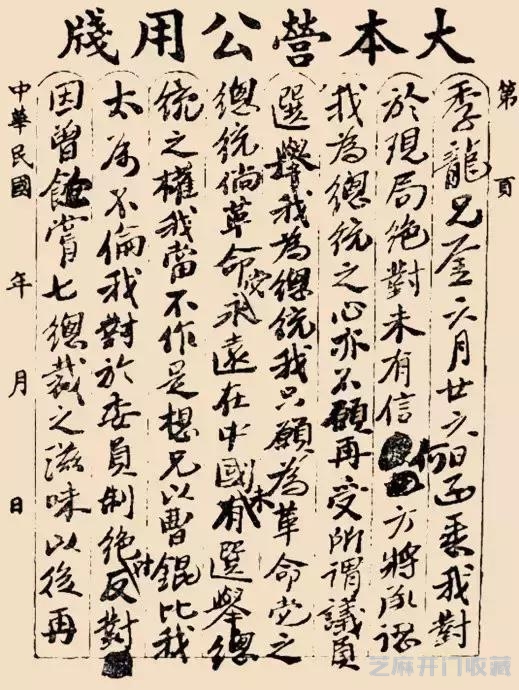 大本營公用牋
第 頁
季龍兄鑒六月廿六日函悉我對
於現局絕對未有信何方將承認
我為總統之心亦不願再受所謂議員
選舉我為總統我只願為革命党之
總統倘革命党永遠在中國未有選舉總
統之權我當不作是想兄以曹錕比我
太為不倫我對於委員制絕对反對
因曾飽嘗七總裁之滋味以後再
中華民國 年 月 日
芝麻开门收藏